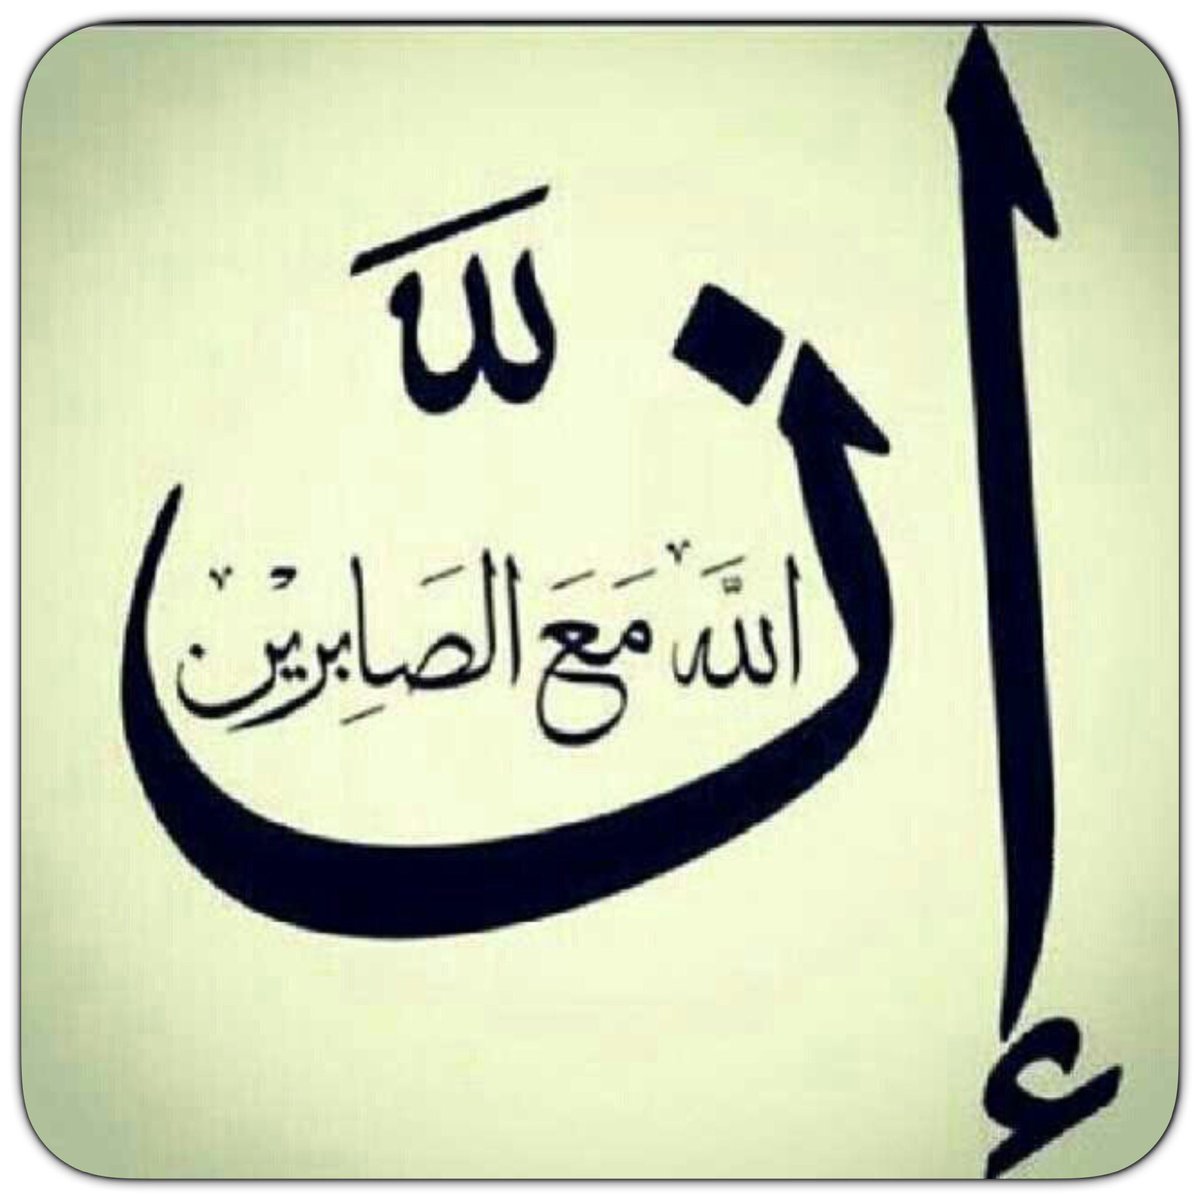 إنَّ
اللَّهَ مَعَ الصَابِرِيْن